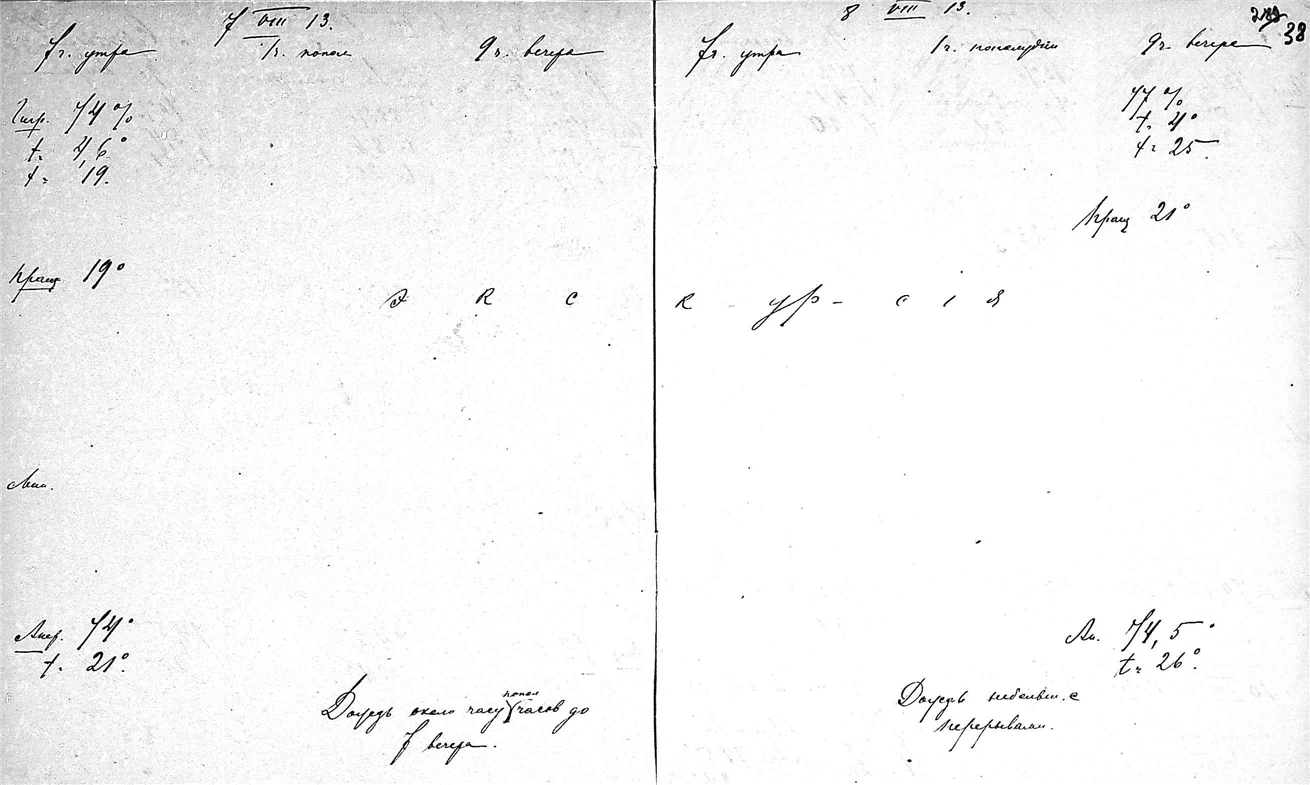 7 VIII 13.
7 ч. утра 1 ч. попол 9 ч. вечера
Гигр. 74 %
t= 4,6°
t= 19.
Пращ 19°
Э к с
Ан.
Анер. 74°
t. 21°.
попол
Дождь около часу часов до
7 вечера.
8 VIII 13.
38
7 ч. утра 1 ч. пополудни 9 ч. вечера
77 %
t. 4°
t= 25.
Пращ 21°
к - ур - с і я
Ан. 74,5°
t= 26°.
Дождь небольш. с
перерывами.